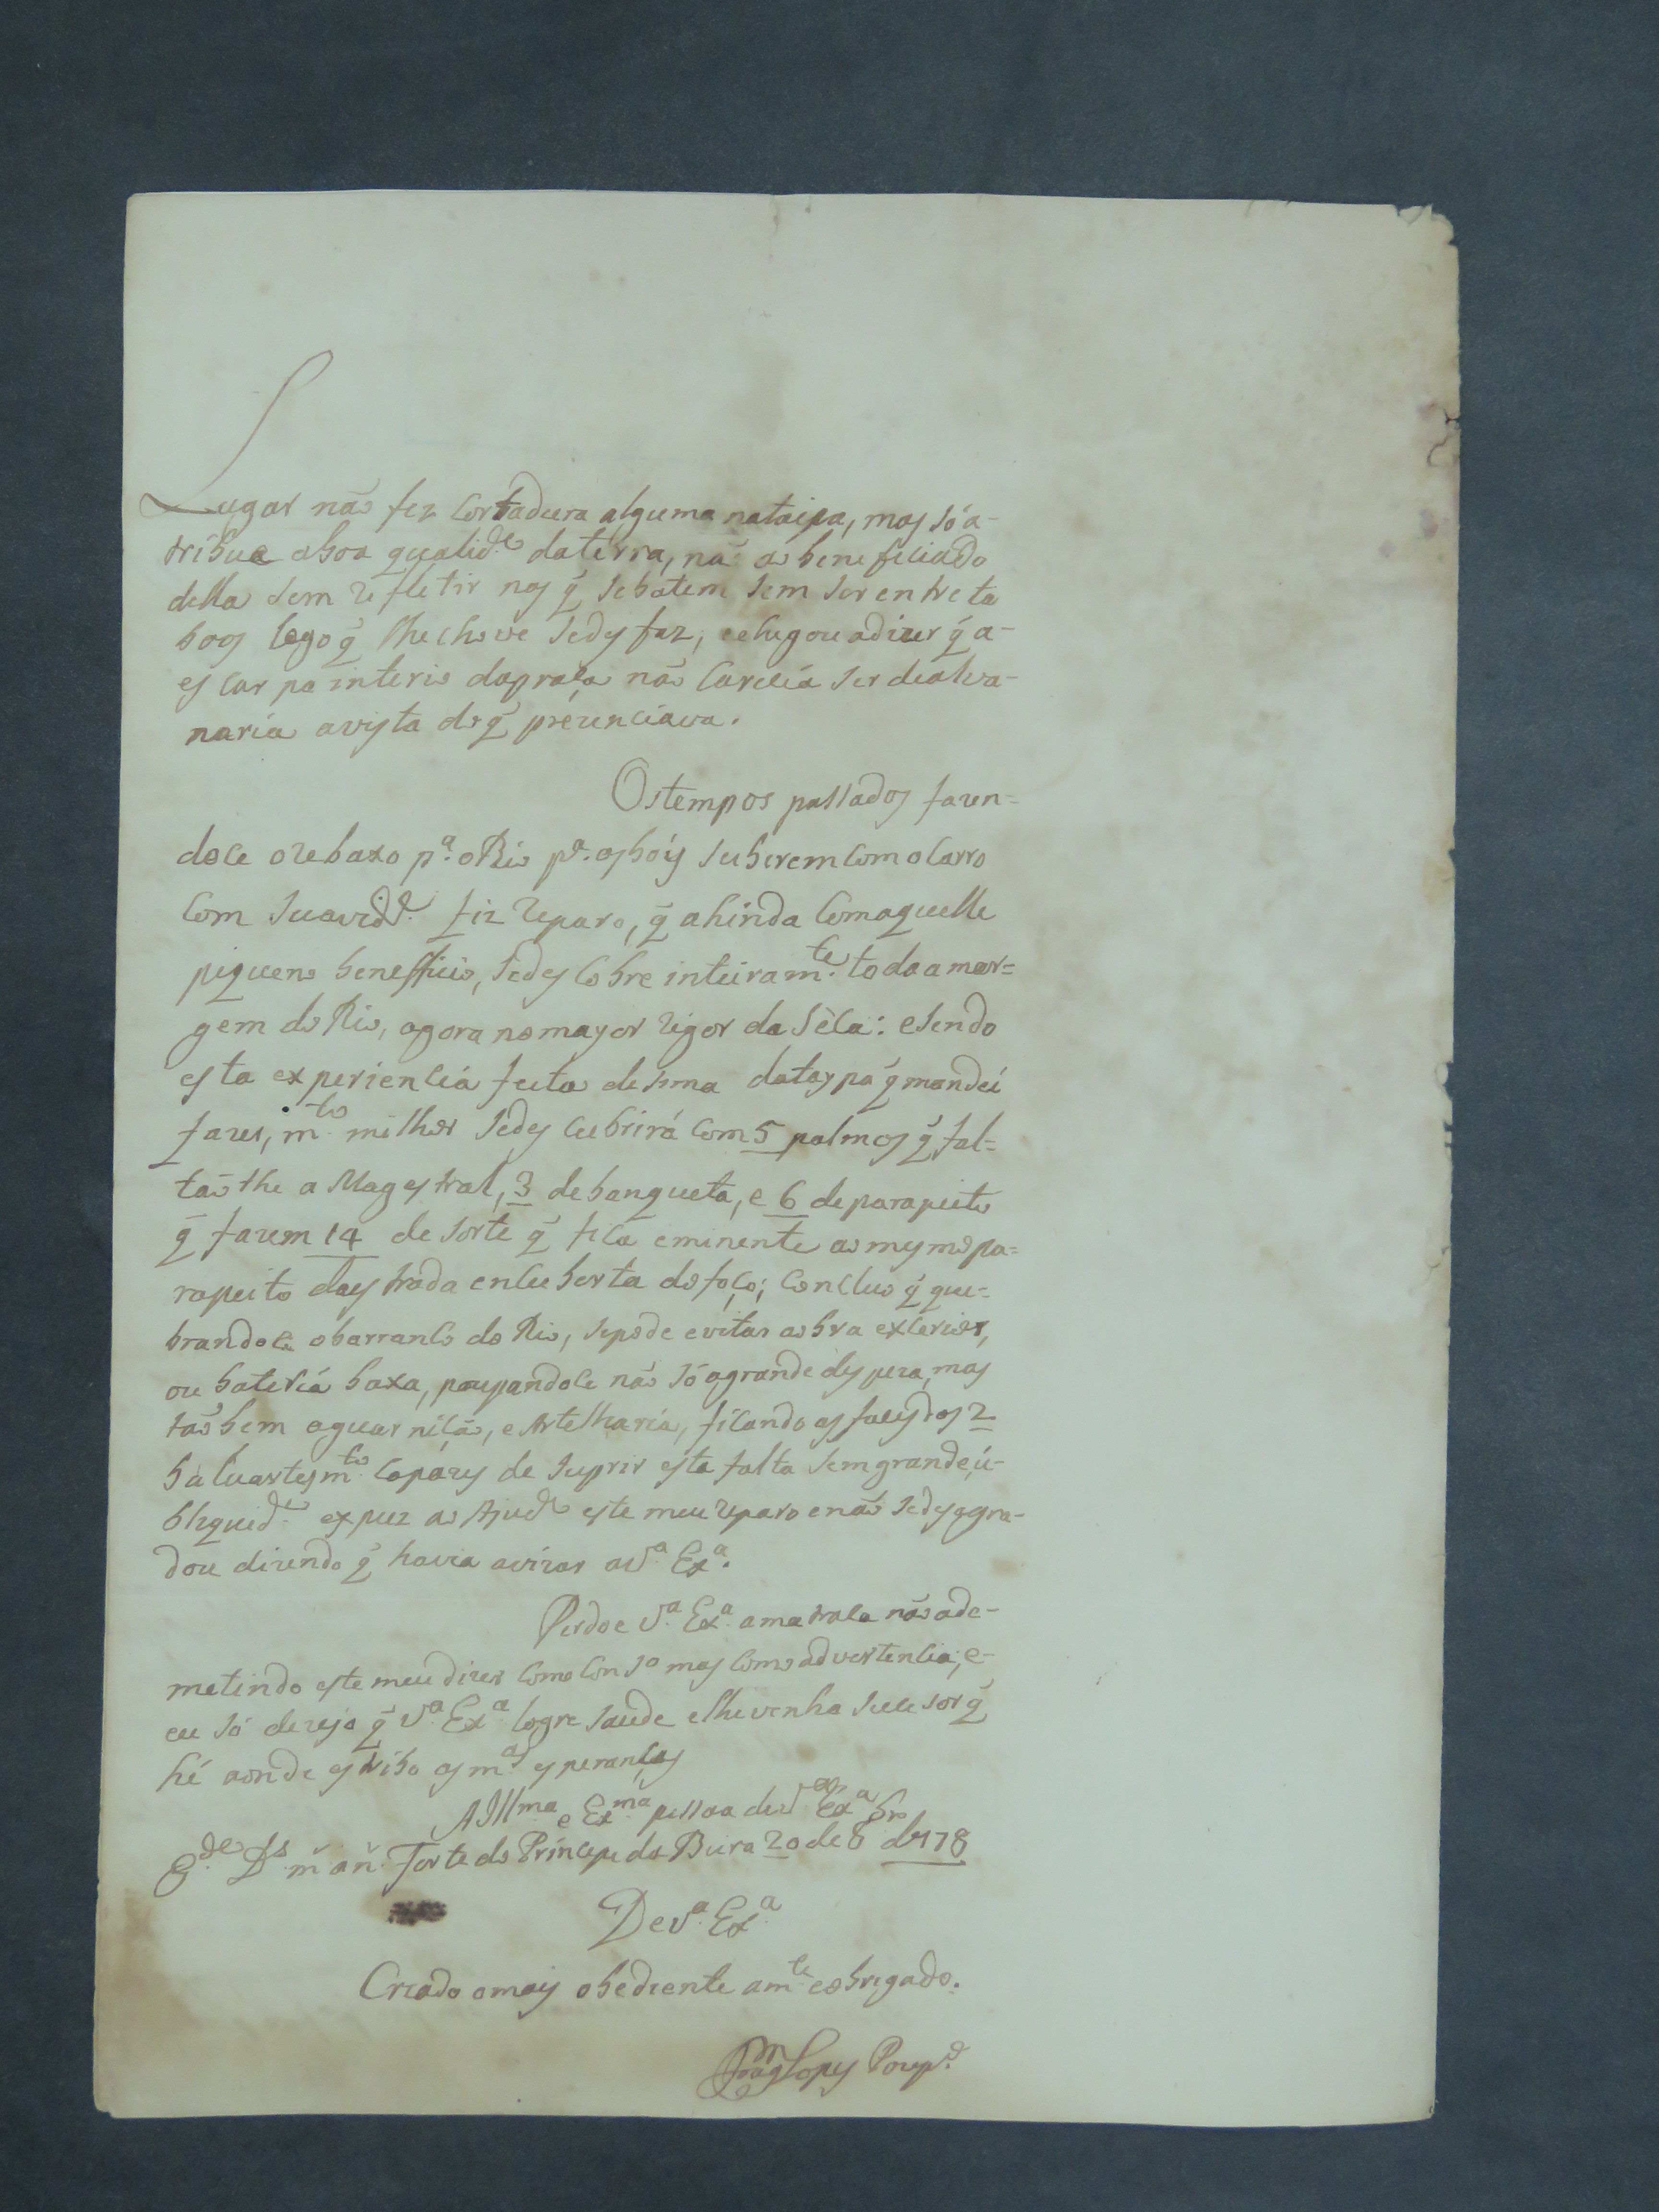 Lugar não fez Cortadura alguma nataipa, mas só a-
tribue aboa qualid.e daterra, não ao beneficiado
della sem refletir nos q̃ sebatem sem ser entre ta
boas logo q̃ lhe chove sedesfaz, echegou adizer q̃ a-
escarpa interio dapraça não Carecia ser dealve-
naria avista do q̃ prezenciava.
Ostempos passados fazen-
doce orebaxo p.a oRio p.a osbois suberem Com oCarro
Com suavid.e fiz reparo, q̃ ahinda Comaquelle
piqueno beneficio, sedesCobre inteiram.te toda a mar=
gem do Rio, agora nomayor rigor da sêca: esendo
esta experiencia feita desima dataypa q̃ mandei
fazer, m.to milhor sedesCubrirá Com 5 palmos q̃ fal=
tão lhe a Magestral, 3 debanqueta, e 6 deparapeito
q̃ fazem 14 de sorte q̃ fica eminente ao mesmo pa=
rapeito daestrada encuberta do foço; Concluo q̃ que=
brandoce obarranco do Rio, sepode evitar aobra exterior,
ou bateria baxa, poupandoce não só agrande despeza, mas
tãobem aguarnição, e Artelharia, ficando as faces dos 2
baluartes m.to Capazes de suprir esta falta sem grande u-
bliquid.e expuz ao Ajud.e este meu reparo enão sedesagra-
dou dizendo q̃ havia avizar a V.a Ex.a.
Perdoe V.a Ex.a amatraca não ade-
metindo este meu dizer Como Con.so mas Como advertencia, e-
eu só dezejo q̃ V.a Ex.a logre saude elhe venha sucesor q̃
hé aonde estribo as m.as esperanças
A Ill.ma e Ex.ma pessoa de V.a Ex.a
G.de D.s m. an. Forte do Principe da Beira 20 de 8 de 778
De V.a Ex.a
Criado omais obediente am.te eobrigado.
Lopes Poup.o